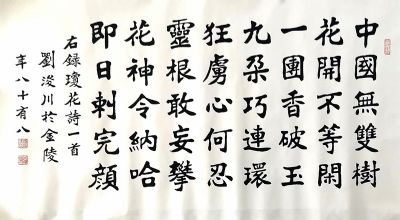 中國無雙樹
花開不等閑
一團香破玉
九朶巧連環
狂虜心何忍
靈根敢妄攀
花神令納哈
即日刺完顔
右錄瓊花詩一首
劉浚川於金陵
年八十有八